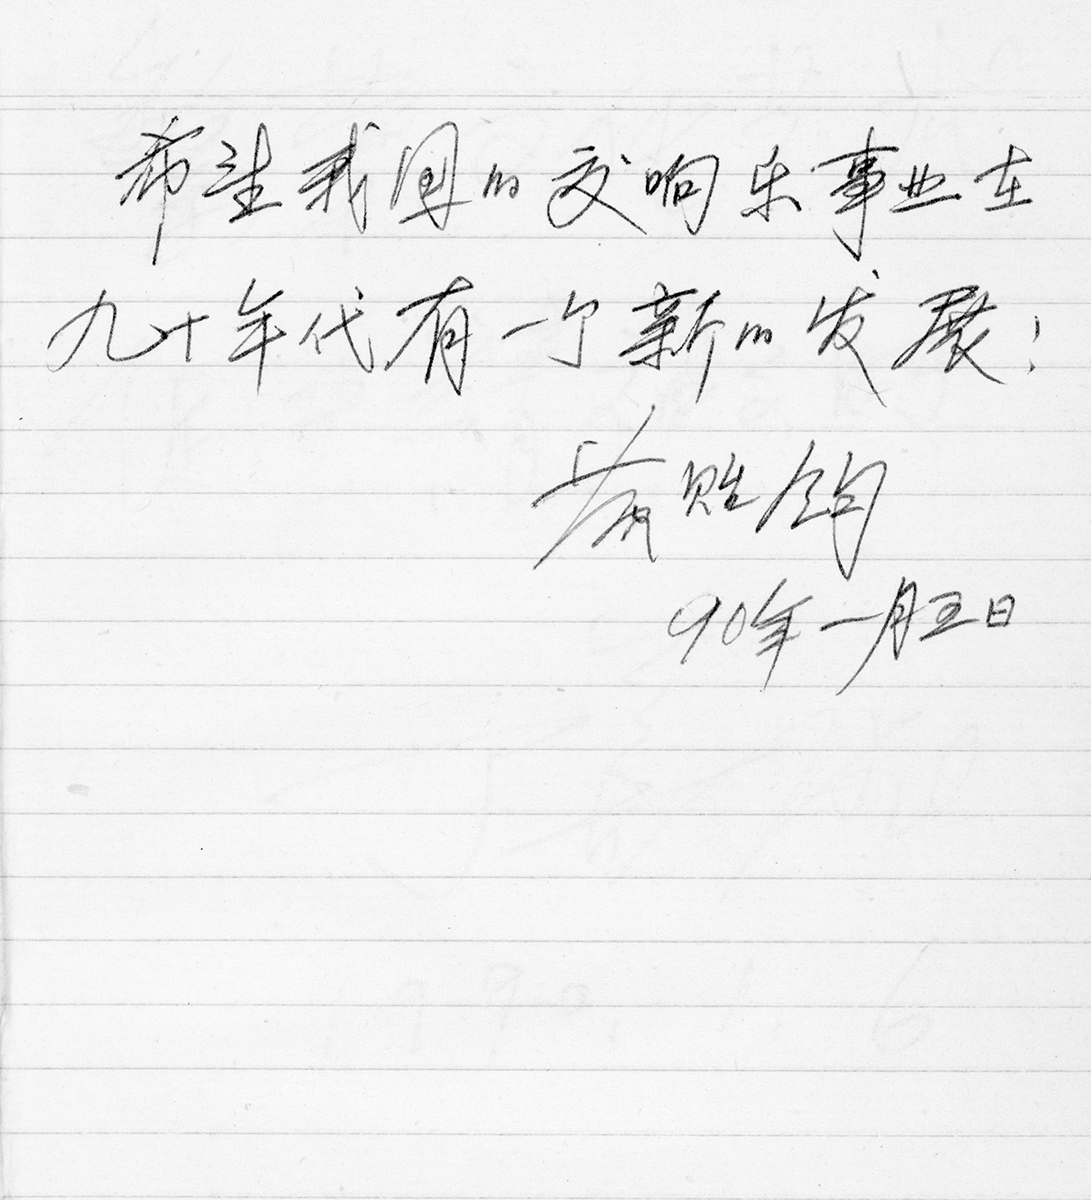 希望我国的交响乐事业在
九十年代有一个新的发展！
黄贻钧
90年一月五日